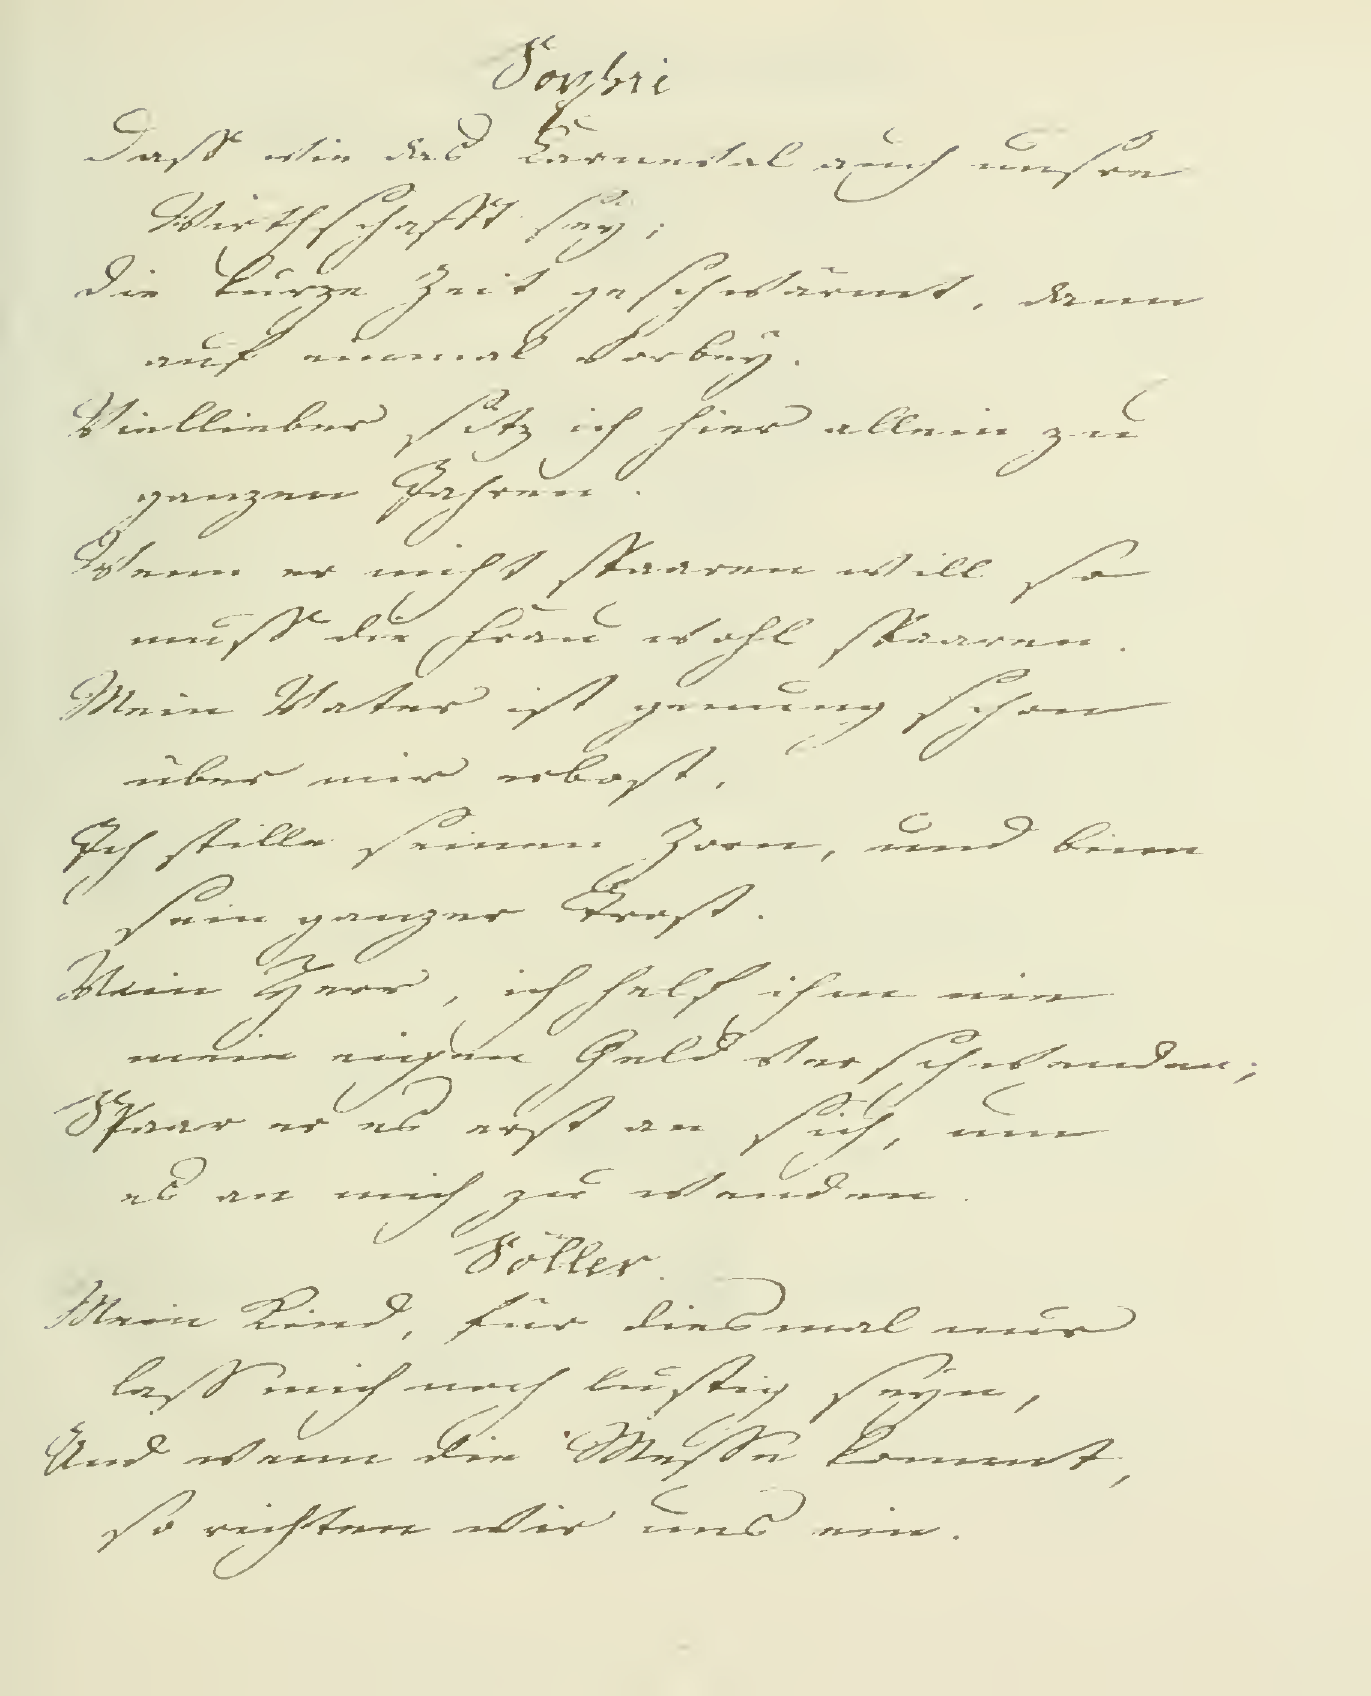 Sophie
Dass wie das Karneval auch unsre
Wirthschafft sey;
Die kurze Zeit geschwärmt, dann
auf einmal vorbey.
Viellieber sitz ich hier allein zu
ganzen Jahren.
Wenn er nicht spaaren will so
muss die Frau wohl spaaren.
Mein Vater ist genung schon
über mir erbost,
Ich stille seinen Zorn, und binn
sein ganzer Trost.
Nein Herr, ich helf ihm nie
mein eigen Geld verschwenden;
Spaar er es erst an sich, um
es an mich zu wenden.
Söller.
Mein Kind, für diesmal nur
lass mich noch lustig seyn,
Und wenn die Messe kommt,
so richten wir uns ein.